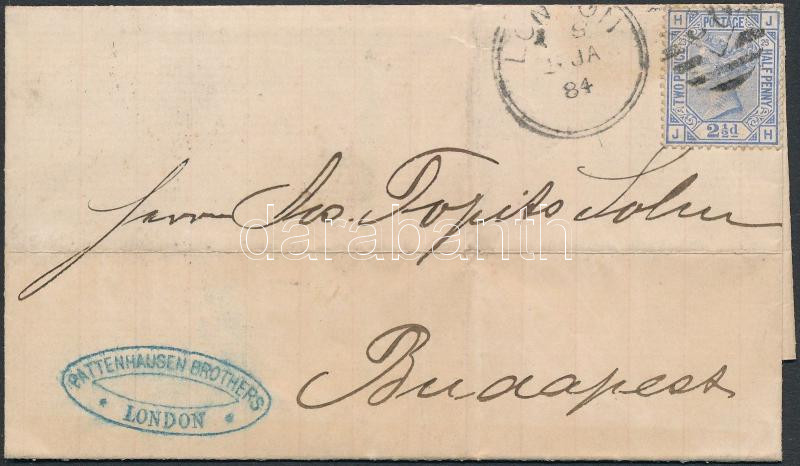 LONDON
S
JA
84
H POSTAGE J
TWO PENCE
HALFPENNY
23
J 2½d H
Herrn Jos. Topits Sohn
darabanth
Budapest
PATTENHAUSEN BROTHERS
* LONDON *